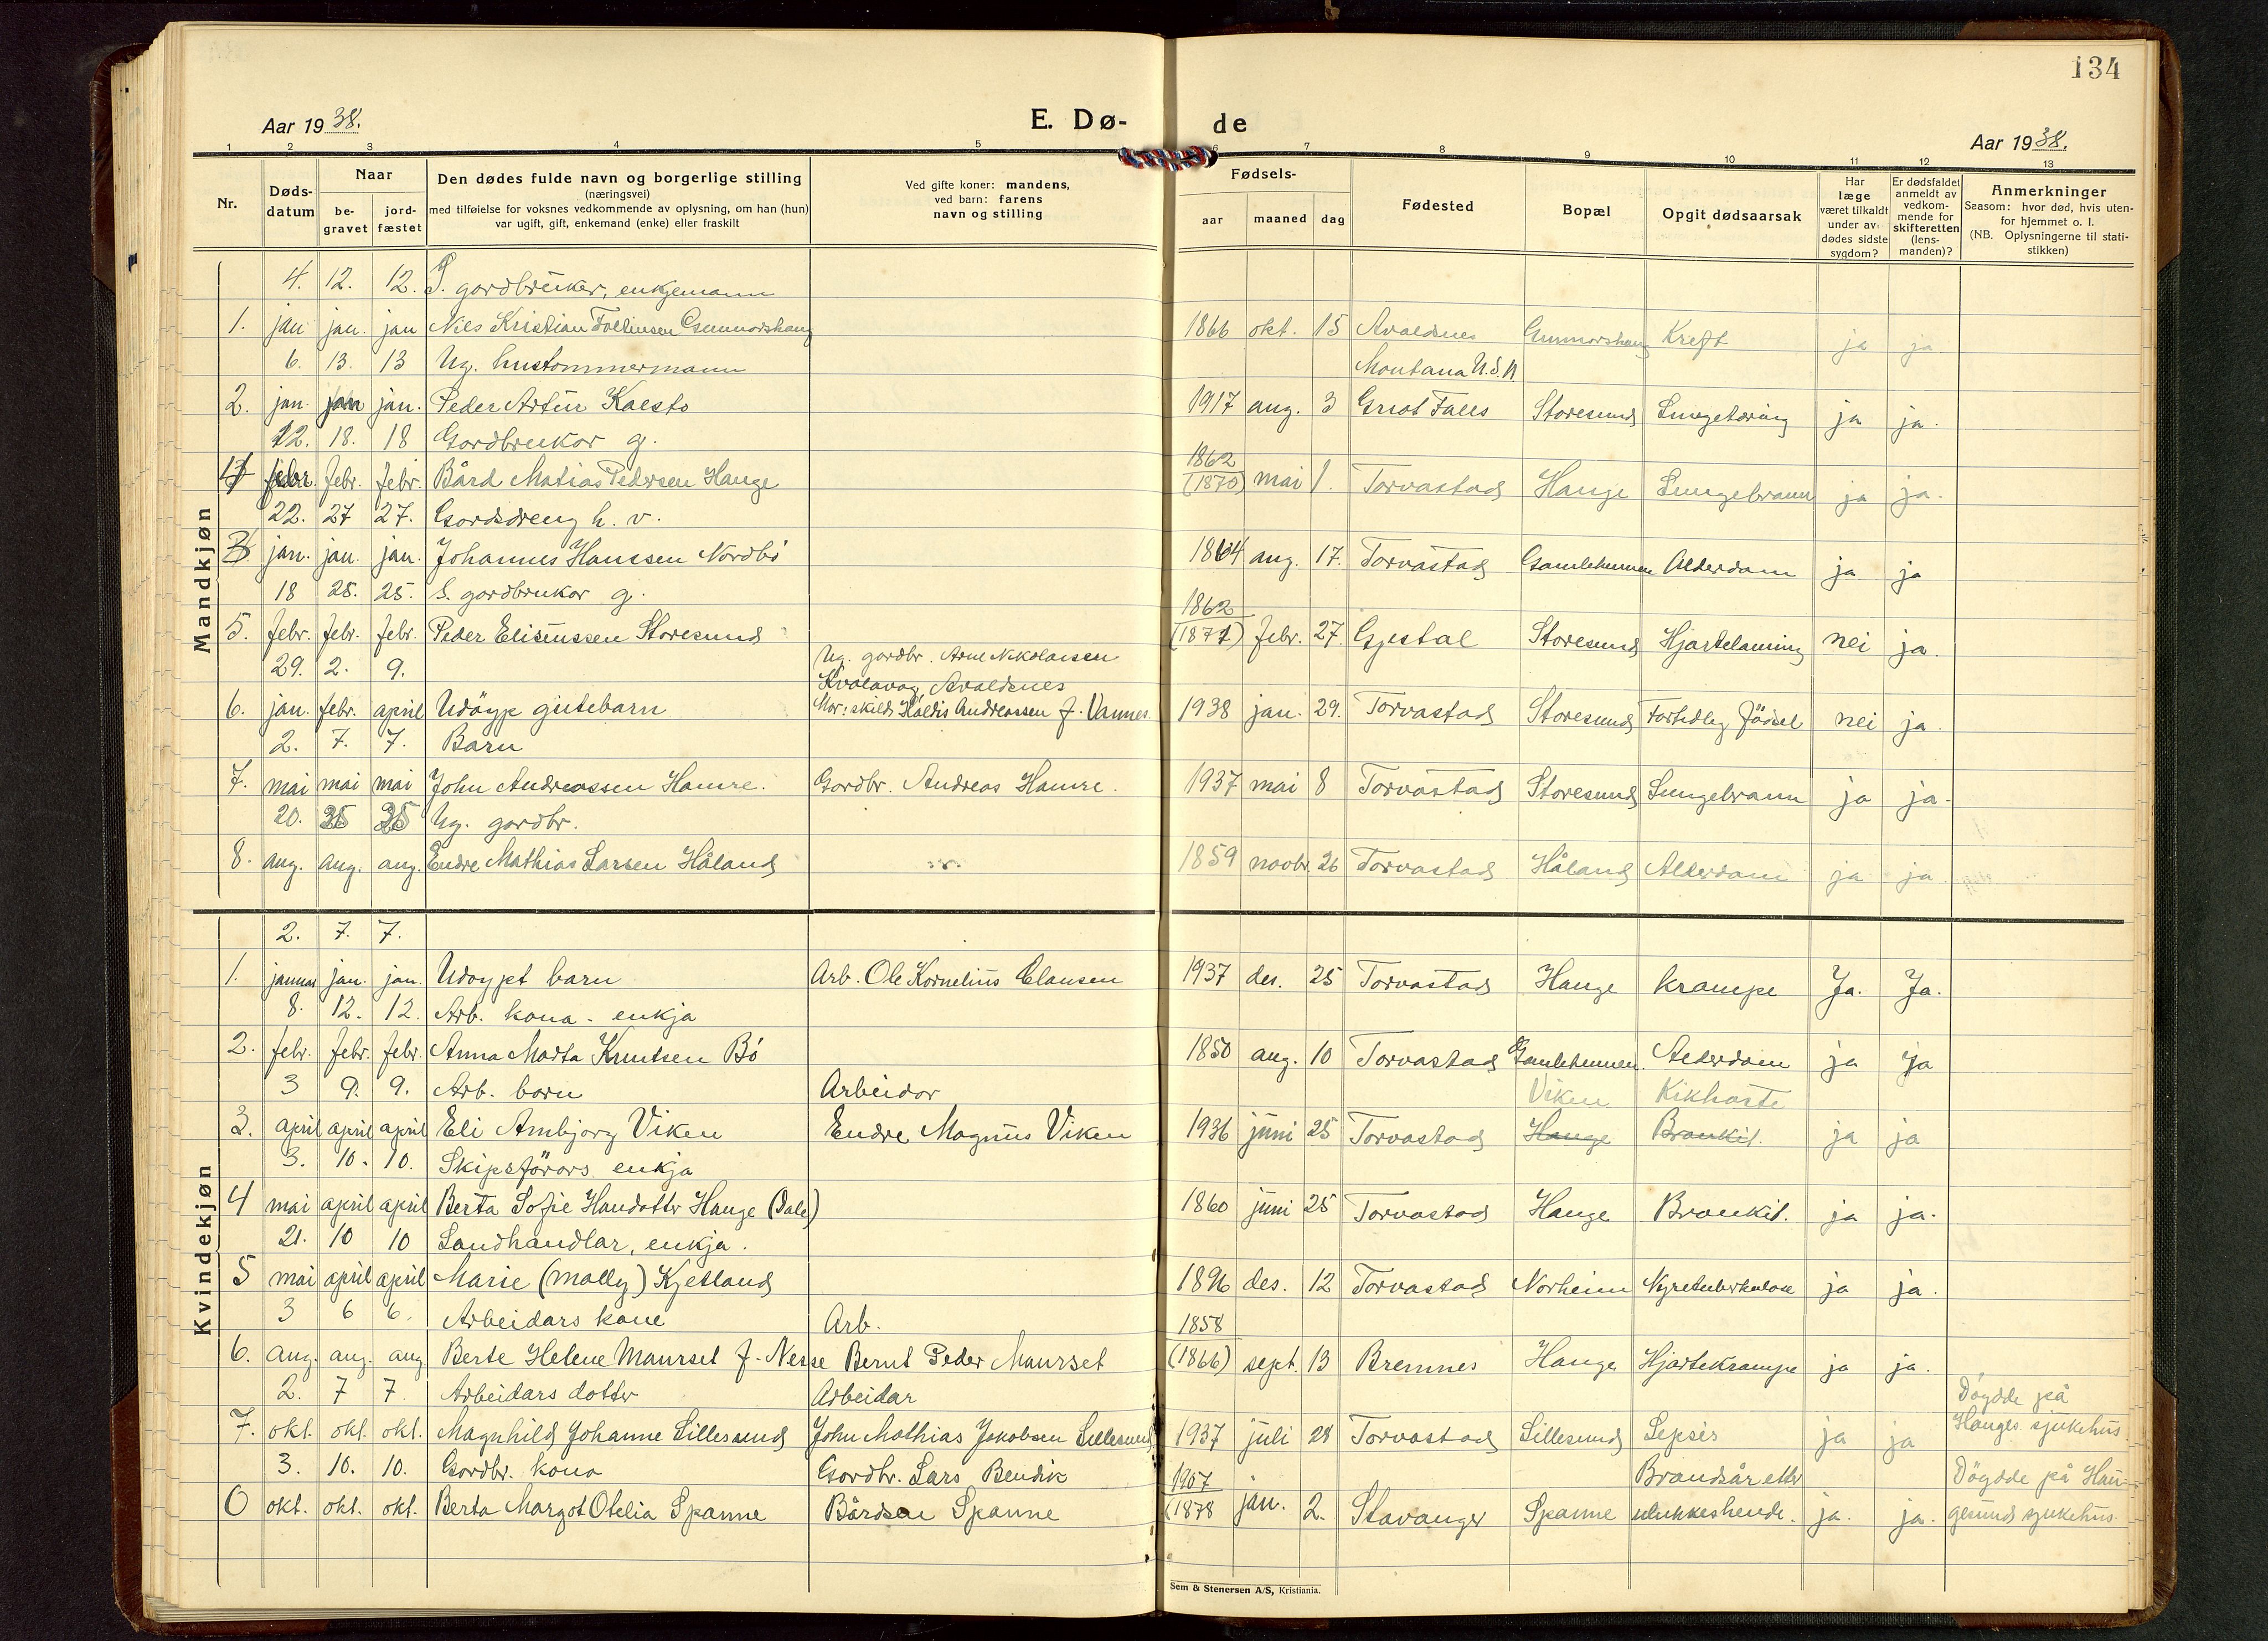 134
Aar 1938.
E. Dø-
de
Aar 1938.
1 2 3 4 5 6 7 8 9 10 11 12 13
Nr.
Døds-
datum
Naar
be-
gravet
jord-
fæstet
Den dødes fulde navn og borgerlige stilling
(næringsvei)
med tilføielse for voksnes vedkommende av oplysning, om han (hun)
var ugift, gift, enkemand (enke) eller fraskilt
Ved gifte koner: mandens,
ved barn: farens
navn og stilling
Fødsels-
aar maaned dag
Fødested
Bopæl
Opgit dødsaarsak
Har
læge
været tilkaldt
under av-
dødes sidste
sygdom?
Er dødsfaldet
anmeldt av
vedkom-
mende for
skifteretten
(lens-
manden)?
Anmerkninger
Saasom: hvor død, hvis uten-
for hjemmet o. l.
(NB. Oplysningerne til stati-
stikken)
Mandkjøn
4. 12. 12. gardbrukar, enkjemann
1. jan jan. jan Nils Kristian Gunnarshaug 1866 okt. 15 Avaldsnes Gunnarshaug Kreft ja ja
6. 13. 13 Ug. hustømmermann Montana U.S.A.
2. jan. jan jan. Peder Artur Kalstø 1917 aug. 3 Great Falls Storesund Lungetæring ja ja.
12. 18. 18 Gardbrukar g. 1862
4 febr. febr. febr. Bård Matias Pedersen Hauge (1870) mai 1. Torvastad Hauge Lungebrann ja ja.
22. 27 27. Gardsdreng h. v.
3 jan. jan. jan. Johannes Hanssen Nordbö 1864 aug. 17. Torvastad Gamleheimen Alderdom ja ja
18 25. 25. S. gardbrukar g. 1862
5. febr. febr. febr. Peder Eliseussen Storesund (1871) febr. 27. Gjestal Storesund Hjartelaming nei ja.
29. 2. 9. Ug. gardbr. Arne Nikolaisen
Kvalavag, Avaldsnes
6. jan. febr. april Udöypt gutebarn Mor: skild Haldis Andreassen f. Vannes. 1938 jan. 29. Torvastad Storesund Fortidleg födsel nei ja.
2. 7. 7. Barn
7. mai mai mai John Andreassen Hamre. Gardbr. Andreas Hamre. 1937 mai 8 Torvastad Storesund Lungebrann ja ja.
20. 25 25 Ug. gardbr.
8. aug. aug. aug. Endre Mathias Larsen Håland 1859 novbr. 26 Torvastad Håland Alderdom ja ja
Kvindekjøn
2. 7. 7.
1. januar jan. jan. Udöypt barn Arb. Ole Kornelius Clausen 1937 des. 25 Torvastad Hauge krampe Ja. Ja.
8. 12. 12. Arb. kona - enkja
2. febr. febr. febr. Anna Marta Knutsen Bö 1850 aug. 10 Torvastad Gamleheimen. Alderdom ja ja
3 9. 9. Arb. barn Arbeidar Viken Kikhoste
3. april april april Eli Arnbjørg Viken Endre Magnus Viken 1936 juni 25 Torvastad Hauge Bronkit. ja ja
3. 10. 10. Skipsförars enkja
4 mai april april Berta Sofie Hansdotter Hauge (Dale) 1860 juni 25 Torvastad Hauge Bronkit. ja ja.
21. 10 10 Landhandlar, enkja.
5 mai april april Marie (Mally) Kjetland 1896 des. 12 Torvastad Norheim Nyretuberkulose ja ja.
3 6 6. Arbeidars kone Arb. 1858
6. aug. aug. aug Berte Helene Maurset f. Nesse Bernt Peder Maurset (1866) sept. 13 Bremnes Hauge Hjartekrampe ja ja.
2. 7 7. Arbeidars dotter Arbeidar Döydde på
7. okt. okt. okt. Magnhild Johanne Lillesund John Mathias Jakobsen Lillesund 1937 juli 28 Torvastad Lillesund Sepsis ja ja Hauges sjukehus
3. 10. 10. Gardbr. kona Gardbr. Lars Bendik 1907 Brandsår etter Döydde på Hau-
0 okt. okt. okt. Berta Margot Otelia Spanne Bårdsen Spanne (1878 jan. 2. Stavanger Spanne ulukkeshende. ja. ja. gesund sjukehus.
Sem & Stenersen A/S, Kristiania.